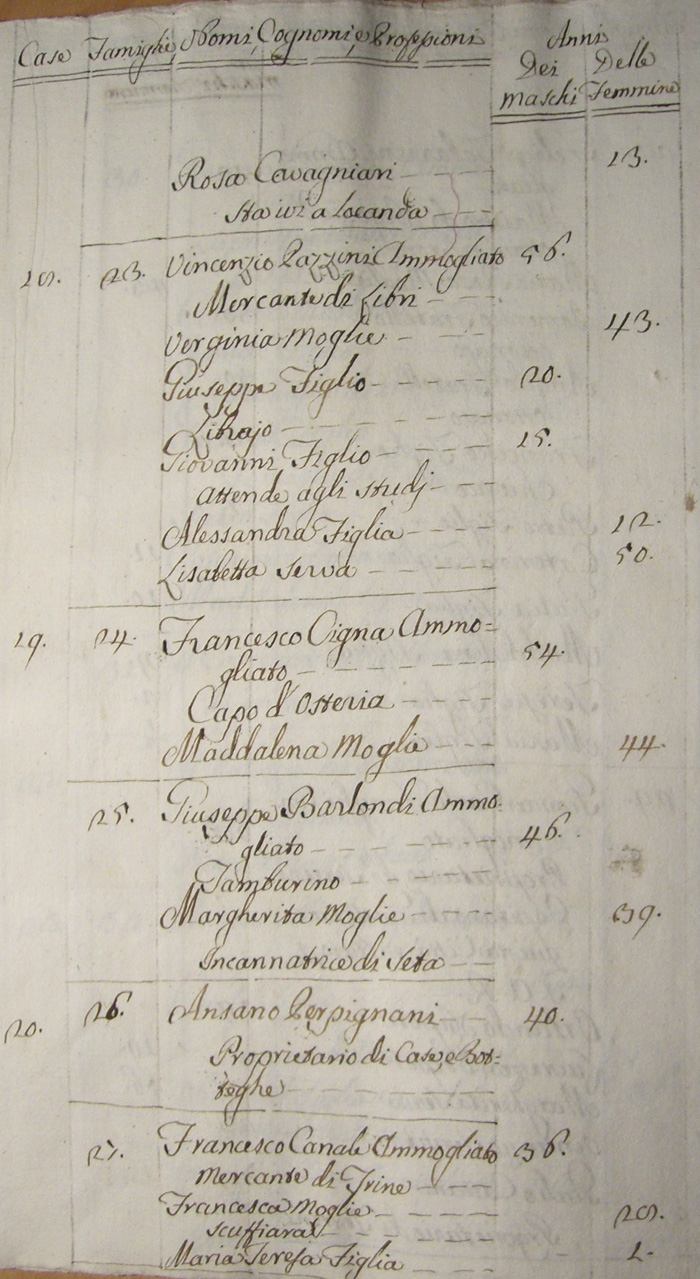 Case Famiglie Nomi, Cognomi, e Professioni Anni
Dei Maschi Delle Femmine
Rosa Cavagniari 13.
Sta ivi a Locanda
18. 23. Vincenzio Pazzini Ammogliato 56.
Mercante di Libri
Verginia Moglie 43.
Giuseppe Figlio 20.
Librajo
Giovanni Figlio 15.
Attende agli studj
Alessandra Figlia 12.
Lisabetta Serva 50.
19. 24. Francesco Cigna Ammo=
gliato 54.
Capo d'Osteria
Maddalena Moglie 44.
25. Giuseppe Barlondi Ammo=
gliato 46.
Tamburino
Margherita Moglie 39.
Incannatrice di Seta
20. 26. Ansano Perpignani 40.
Proprietario di Case, e Bot=
teghe
27. Francesco Canale Ammogliato 36.
Mercante di Trine
Francesca Moglie 28.
Scuffiara
Maria Teresa Figlia 1.